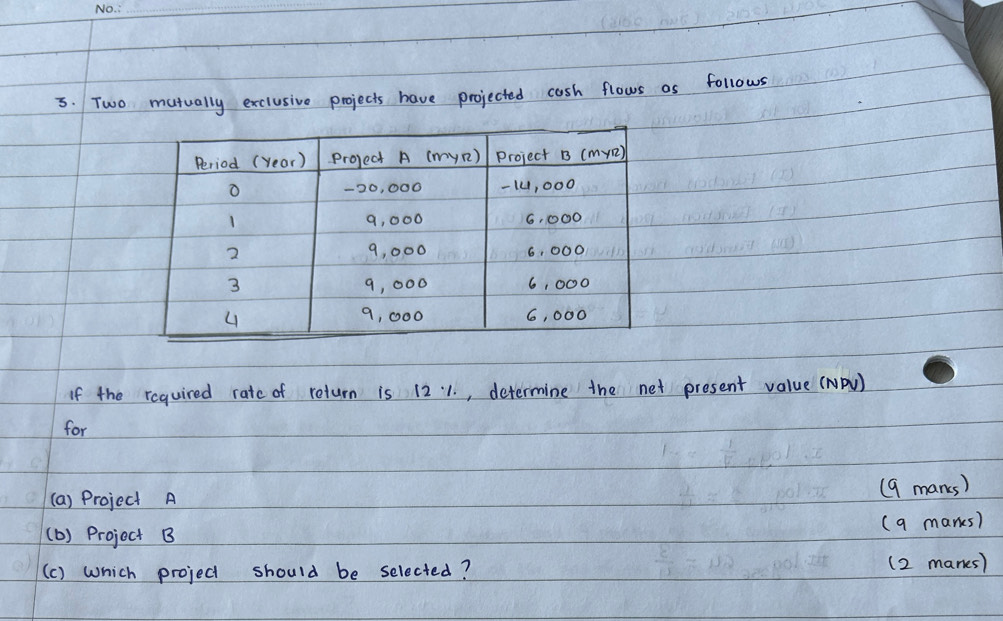 No.:
3. Two mutually exclusive projects have projected cash flows as follows
Period (Year) Project A (MYR) Project B (MYR)
0 -20,000 -14,000
1 9,000 6,000
2 9,000 6,000
3 9,000 6,000
4 9,000 6,000
If the required rate of return is 12 %, determine the net present value (NPV)
for
(a) Project A (9 marks)
(b) Project B (9 marks)
(c) Which project should be selected? (2 marks)